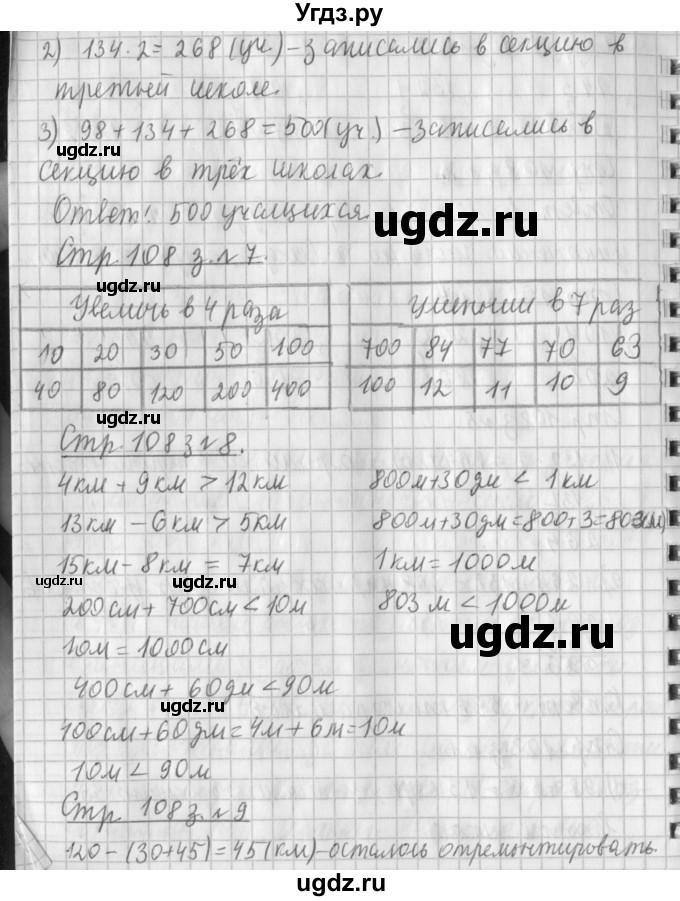 Угдз.ру
2) 134·2=268(уч.)-записались в секцию в
третьей школе.
3) 98+134+268=500(уч.)-записались в
ugdz.ru
секцию в трёх школах
Ответ: 500 учащихся
ugdz.ru
Стр 108 з.№7.
ugdz.ru
Увеличь в 4 раза
Уменьши в 7 раз
10 20 30 50 100
700 84 77 70 63
40 80 120 200 400
100 12 11 10 9
ugdz.ru
Стр 108 з №8.
4км + 9км > 12км
800м+30дм < 1км
ugdz.ru
13км - 6км > 5км
800м+30дм=800+3=803(м)
15км- 8км = 7км
1км=1000м
ugdz.ru
200см+ 700см<10м
803м<1000м
ugdz.ru
ugdz.ru
10м=1000см
400см+ 60дм<90м
ugdz.ru
400см+60дм=4м+6м=10м
10м< 90м
Стр 108 з.№9
ugdz.ru
120-(30+45)=45(км)-осталось отремонтировать.
ugdz.ru